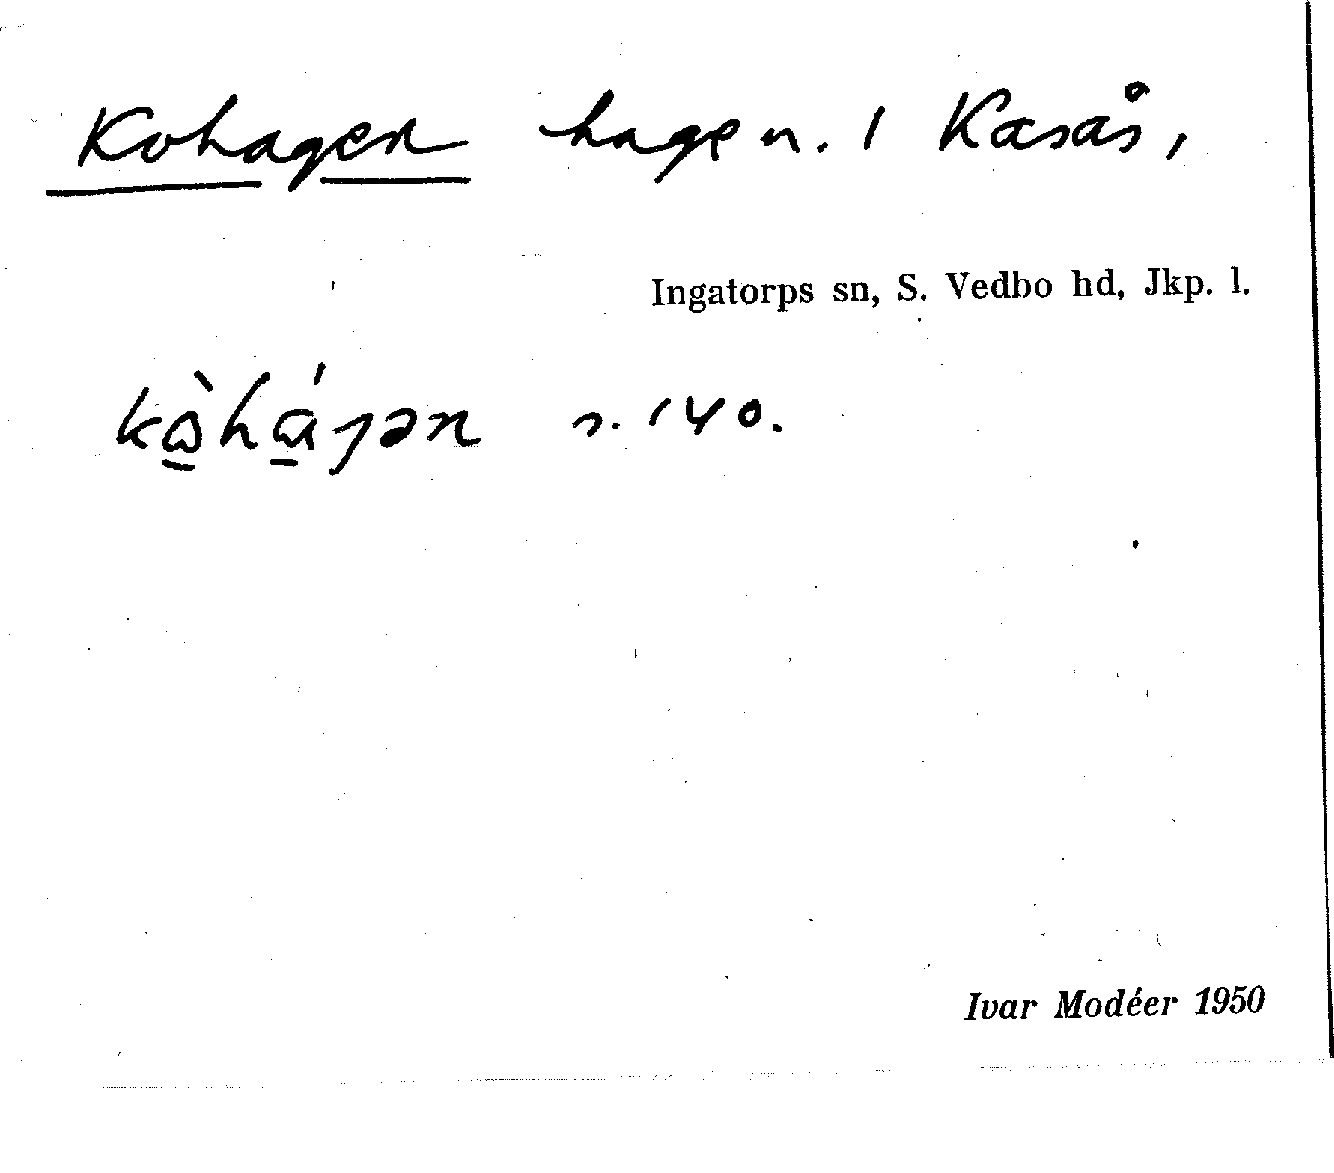 Kohagen hage n. 1 Kasås,
Ingatorps sn, S. Vedbo hd, Jkp. l.
s. 140.
Ivar Modéer 1950